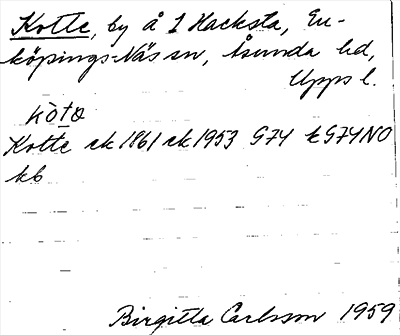 Kotte, by å 1 Hacksta, En-
köpings-Näs sn, Åsunda hd,
Upps l.
kòtɑ
Kotte ek 1861 ek 1953 G74 tG74NO
kb
Birgitta Carlsson 1959